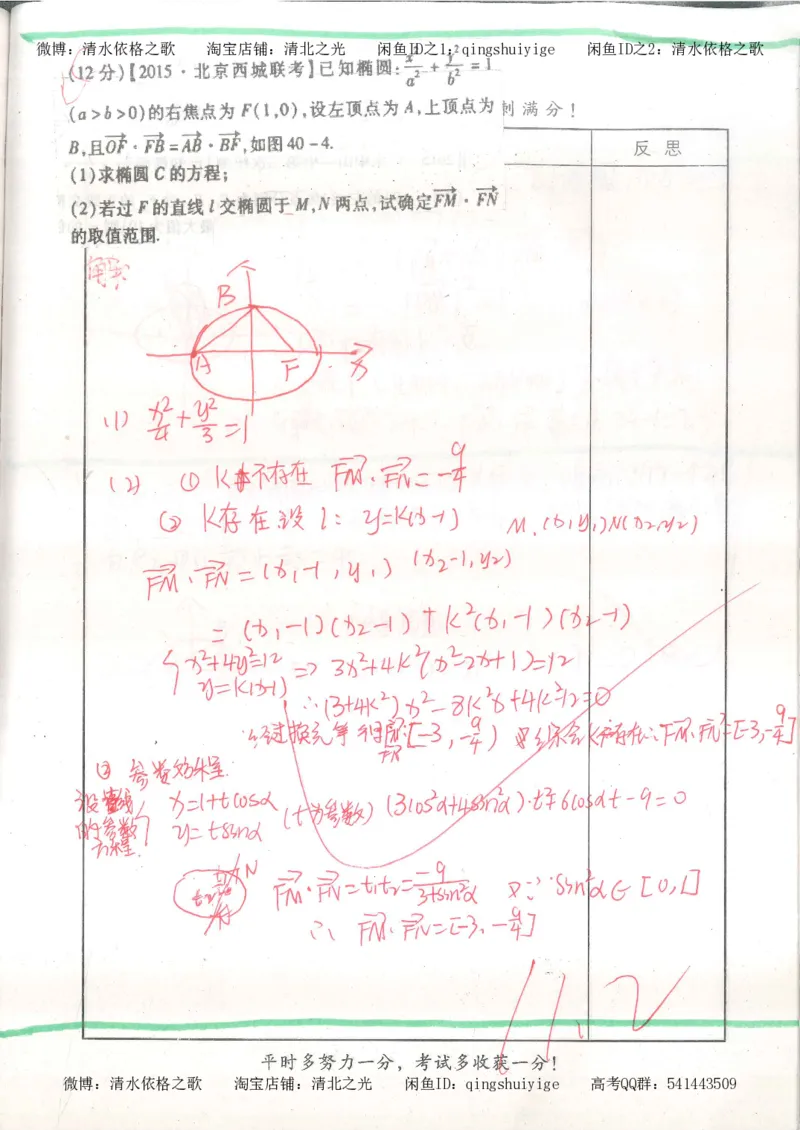 微博：清水依格之歌 淘宝店铺：清北之光 闲鱼ID之1：qingshuiyige 闲鱼ID之2：清水依格之歌
(12分)【2015·北京西城联考】已知椭圆:x²/a²+y²/b²=1
(a>b>0)的右焦点为F(1,0),设左顶点为A,上顶点为
刺满分！
B,且OF→·FB→=AB→·BF→,如图40-4.
反思
(1)求椭圆C的方程;
(2)若过F的直线l交椭圆于M,N两点,试确定FM→·FN→
的取值范围.
解
B
A F x
(1) x²/4+y²/3=1
(2) ① K不存在 FM→·FN→=-9/4
② K存在设 l: y=K(x-1) M(x₁,y₁)N(x₂,y₂)
FM→·FN→=(x₁-1,y₁)(x₂-1,y₂)
=(x₁-1)(x₂-1)+K²(x₁-1)(x₂-1)
{x²+4y²=12 => 3x²+4K²(x²-2x+1)=12
y=K(x-1)
∴(3+4K²)x²-8K²x+4K²-12=0
经过换元等 [-3,-9/4) 综合K不存在∴FM→·FN→=[-3,-9/4]
② 参数方程
设直线 x=1+tcosα (t为参数) (3cos²α+4sin²α)·t²+6cosαt-9=0
的参数 y=tsinα
方程
FM→·FN→=t₁t₂=-9/3+sin²α 又∵sin²α∈[0,1]
∴ FM→·FN→=[-3,-9/4]
11.2
平时多努力一分，考试多收获一分！
微博：清水依格之歌 淘宝店铺：清北之光 闲鱼ID：qingshuiyige 高考QQ群：541443509